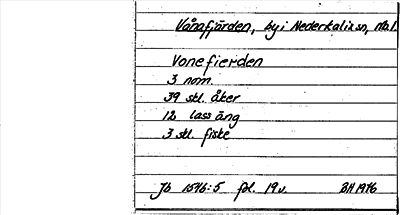 Vånafjärden, by i Nederkalix sn, Nb.l.
Vonefierden
3 nom.
39 skl. åker
12 lass äng
3 skl. fiske
Jb 1546:5 fol. 19v. BH 1976